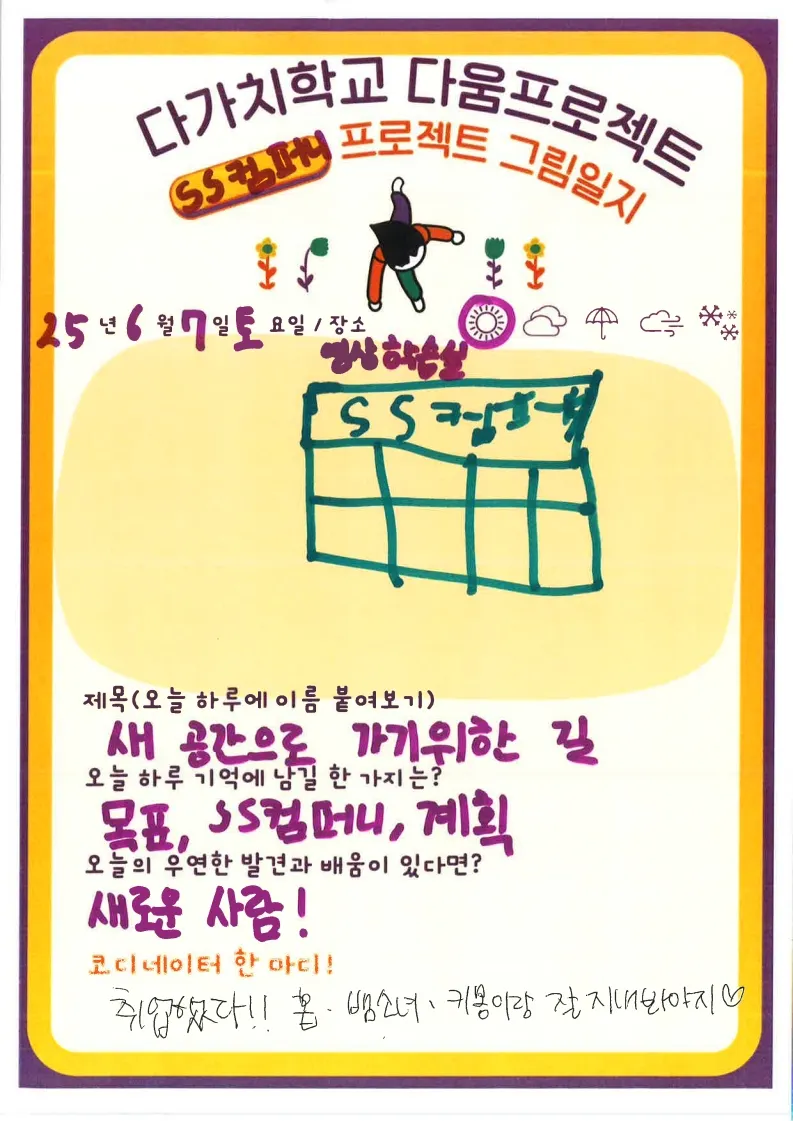 다가치학교 다움프로젝트
SS컴퍼니 프로젝트 그림일지
25년 6월 7일 토요일 / 장소
영상학습실
SS컴퍼니
제목(오늘 하루에 이름 붙여보기)
새 공간으로 가기위한 길
오늘 하루 기억에 남길 한 가지는?
목표, SS컴퍼니, 계획
오늘의 우연한 발견과 배움이 있다면?
새로운 사람!
코디네이터 한 마디!
취업했다!! 홈·뱀소녀·키봉이랑 잘 지내봐야지♡